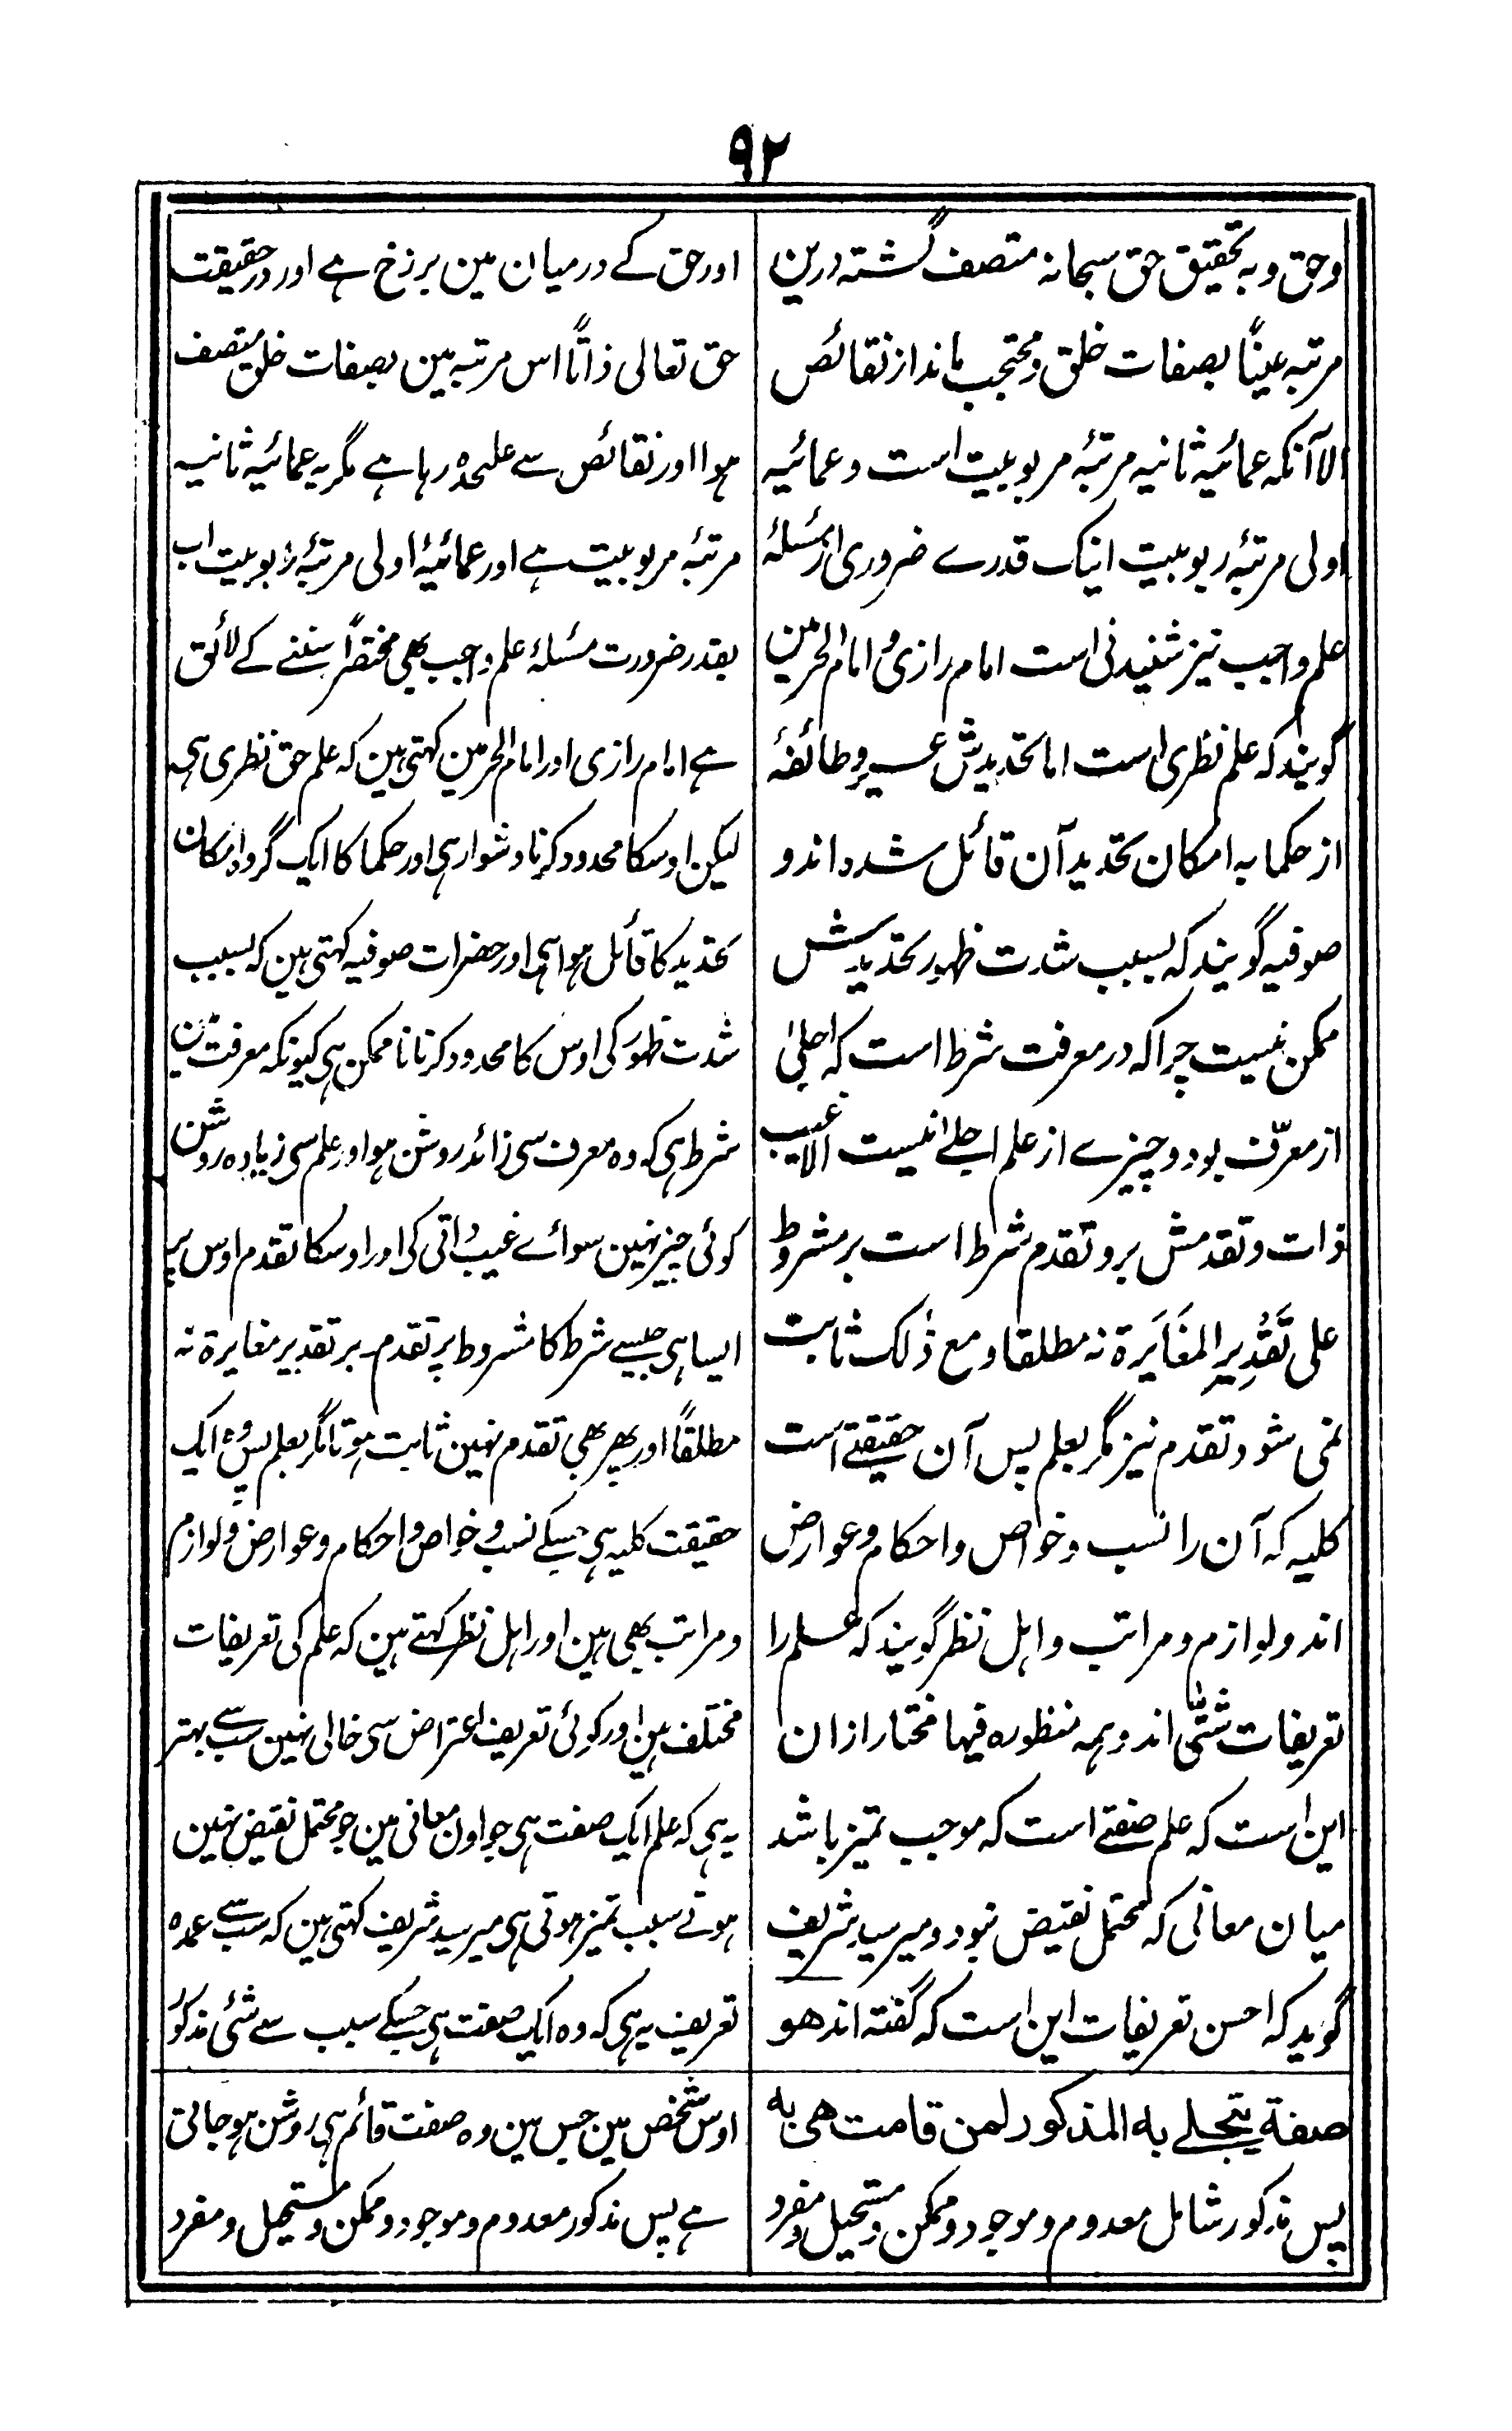 ۹۲
وحق و به تحقیق حق سبحانه متصف گشته درین
مرتبه عیناً بصفات خلق و محتجب ماند از نقائص
الا آنکه عمائیه ثانیه مرتبۂ مربوبیت است و عمائیه
اولی مرتبۂ ربوبیت اینک قدرے ضروری از مسئلۂ
علم واجب نیز شنیدنی است امام رازی و امام الحرمین
گویند که علم نظری است اما تحدیدش عسیر و طائفۂ
از حکما به امکان تحدید آن قائل شده اند و
صوفیه گویند که بسبب شدت ظهور تحدیدش
ممکن نیست چراکه در معرفت شرط است که اجلیٰ
از معرّف بود و چیزے از علم اجلے نیست الا غیب
ذات و تقدمش برو تقدم شرط است بر مشروط
علی تَقْدِیرِ المغَایَرة نه مطلقا و مع ذٰلک ثابت
نمی شود تقدم نیز مگر بعلم پس آن حقیقتے است
کلیه که آن را نسب و خواص و احکام و عوارض
اند و لوازم و مراتب و اہل نظر گویند که علم را
تعریفات شتّٰی اند و ہمه منظوره فیها مختار ازان
این است که علم صفتے است که موجب تمیز باشد
میان معانی که محتمل نقیض نبود و میر سید شریف
گوید که احسن تعریفات این است که گفته اند هو
صفة یتجلے به المذکور لمن قامت هی به
پس مذکور شامل معدوم و موجود و ممکن و مستحیل و مفرد
اور حق کے درمیان مین برزخ ہے اور در حقیقت
حق تعالی ذاتاً اس مرتبہ مین بصفات خلق متصف
ہوا اور نقائص سے علیحدہ رہا ہے مگر یہ عمائیہ ثانیہ
مرتبۂ مربوبیت ہے اور عمائیۂ اولی مرتبۂ ربوبیت اب
بقدر ضرورت مسئلۂ علم واجب بھی مختصراً سننے کے لائق
ہے امام رازی اور امام الحرمین کہتی ہین کہ علم حق نظری ہی
لیکن اوسکا محدود کرنا دشوار ہی اور حکما کا ایک گروہ امکان
تحدید کا قائل ہوا ہی اور حضرات صوفیہ کہتی ہین کہ بسبب
شدت ظہور کی اوس کا محدود کرنا نا ممکن ہی کیونکہ معرفت مین
شرط ہی کہ وہ معرف سی زائد روشن ہو اور علم سی زیادہ روشن
کوئی چیز نہین سوائے غیب ذاتی کی اور اوسکا تقدم اوس پر
ایسا ہی جیسے شرط کا مشروط پر تقدم بر تقدیر مغایرة نہ
مطلقاً اور پھر بھی تقدم نہین ثابت ہوتا مگر بعلم پس وہ ایک
حقیقت کلیہ ہی جسکے نسب و خواص و احکام و عوارض و لوازم
و مراتب بھی ہین اور اہل نظر کہتے ہین کہ علم کی تعریفات
مختلف ہین اور کوئی تعریف اعتراض سی خالی نہین سب سے بہتر
یہ ہی کہ علم ایک صفت ہی جو اون معانی مین جو محتمل نقیض نہین
ہوتے سبب تمیز ہوتی ہی میر سید شریف کہتی ہین کہ سب سے عمدہ
تعریف یہ ہی کہ وہ ایک صفت ہی جسکے سبب سے شئی مذکور
اوس شخص مین جس مین وہ صفت قائم ہی روشن ہو جاتی
ہے پس مذکور معدوم و موجود و ممکن و مستحیل و مفرد